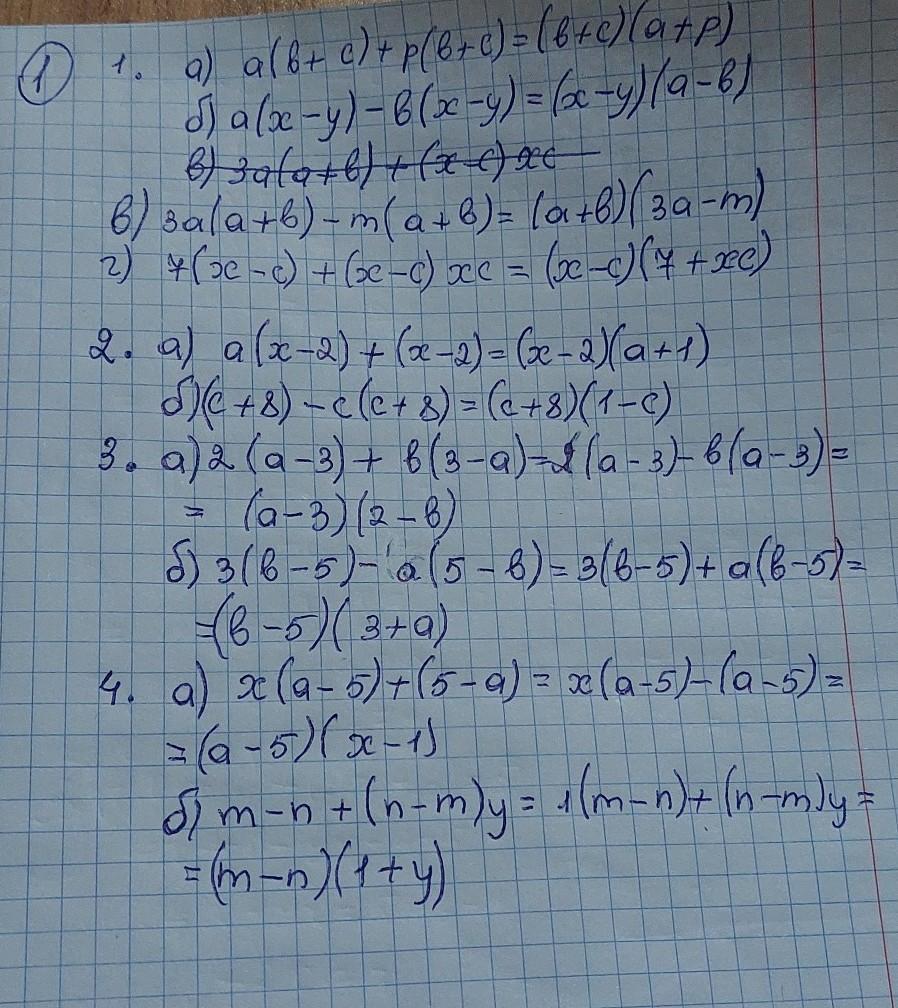 ① 1. а) a(b+c)+p(b+c)=(b+c)(a+p)
б) a(x-y)-b(x-y)=(x-y)(a-b)
в) 3a(a+b)+(x-c)xc
в) 3a(a+b)-m(a+b)=(a+b)(3a-m)
г) 7(x-c)+(x-c)xc=(x-c)(7+xc)
2. а) a(x-2)+(x-2)=(x-2)(a+1)
б) (c+8)-c(c+8)=(c+8)(1-c)
3. а) 2(a-3)+b(3-a)=2(a-3)-b(a-3)=
= (a-3)(2-b)
б) 3(b-5)-a(5-b)=3(b-5)+a(b-5)=
=(b-5)(3+a)
4. а) x(a-5)+(5-a)=x(a-5)-(a-5)=
=(a-5)(x-1)
б) m-n+(n-m)y=1(m-n)+(n-m)y=
=(m-n)(1+y)